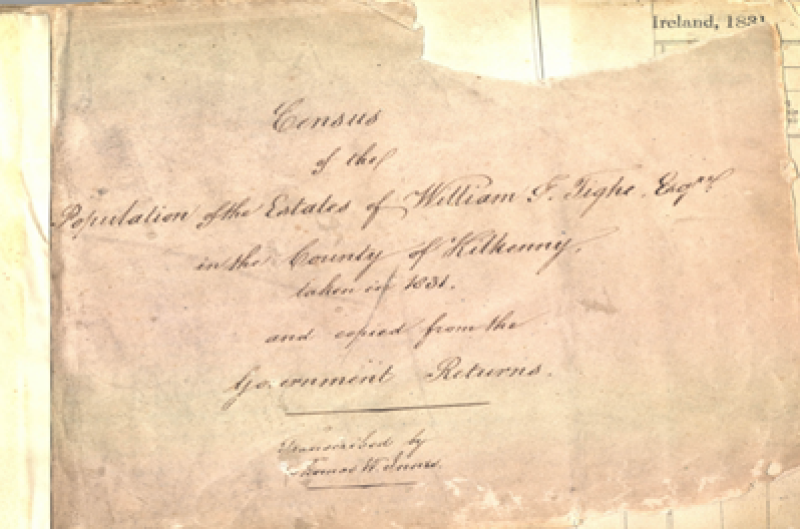 Ireland, 1831
Census
of the
Population of the Estates of William F. Tighe. Esqre
in the County of Kilkenny.
taken in 1831.
and copied from the
Government Returns.
Transcribed by
Thomas W.